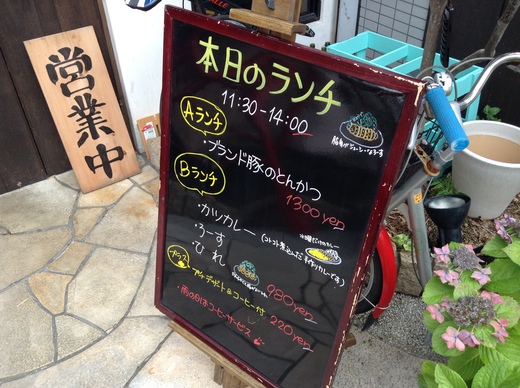 営業中
本日のランチ
11:30-14:00
Aランチ
・ブランド豚のとんかつ
1300yen
Bランチ
・カツカレー
・ろーす
・ひれ
980yen
プラス
プチデザート&コーヒー付
220yen
・雨の日はコーヒーサービス